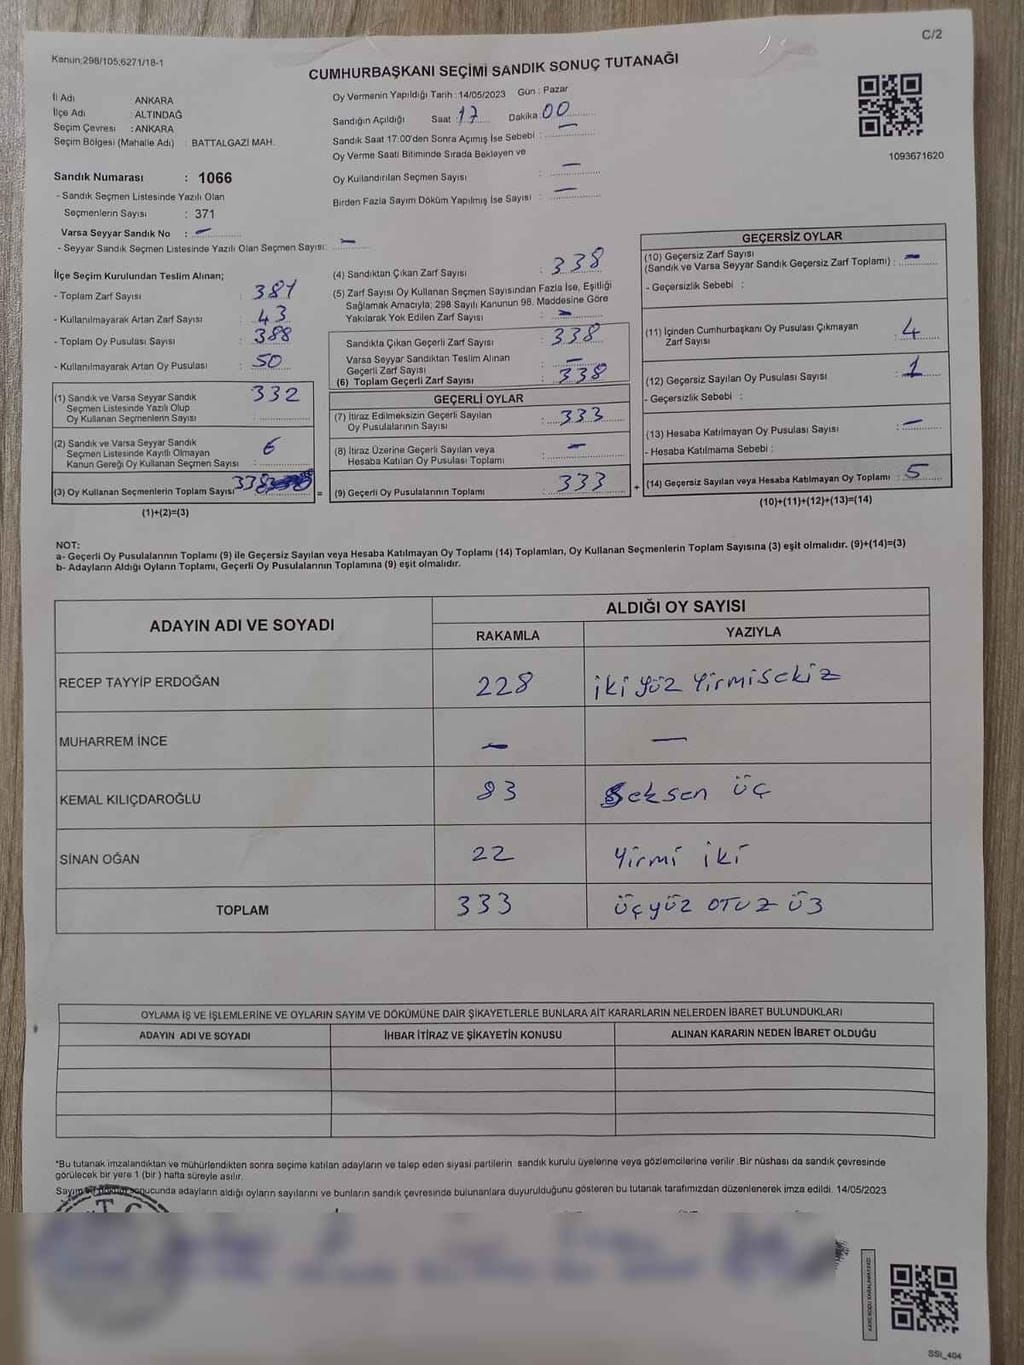 C/2
Kanun;298/105;6271/18-1
CUMHURBAŞKANI SEÇİMİ SANDIK SONUÇ TUTANAĞI
İl Adı ANKARA
İlçe Adı : ALTINDAĞ
Seçim Çevresi : ANKARA
Seçim Bölgesi (Mahalle Adı) : BATTALGAZİ MAH.
Oy Vermenin Yapıldığı Tarih :14/05/2023 Gün : Pazar
Sandığın Açıldığı Saat 17 Dakika 00
Sandık Saat 17:00'den Sonra Açımış İse Sebebi : —
Oy Verme Saati Bitiminde Sırada Bekleyen ve
Oy Kullandırılan Seçmen Sayısı : —
Birden Fazla Sayım Döküm Yapılmış İse Sayısı : —
1093671620
Sandık Numarası : 1066
- Sandık Seçmen Listesinde Yazılı Olan
Seçmenlerin Sayısı : 371
Varsa Seyyar Sandık No : —
- Seyyar Sandık Seçmen Listesinde Yazılı Olan Seçmen Sayısı: —
İlçe Seçim Kurulundan Teslim Alınan;
- Toplam Zarf Sayısı : 381
- Kullanılmayarak Artan Zarf Sayısı : 43
- Toplam Oy Pusulası Sayısı : 388
- Kullanılmayarak Artan Oy Pusulası : 50
(1) Sandık ve Varsa Seyyar Sandık
Seçmen Listesinde Yazılı Olup
Oy Kullanan Seçmenlerin Sayısı : 332
(2) Sandık ve Varsa Seyyar Sandık
Seçmen Listesinde Kayıtlı Olmayan
Kanun Gereği Oy Kullanan Seçmen Sayısı : 6
(3) Oy Kullanan Seçmenlerin Toplam Sayısı 338
=
(1)+(2)=(3)
(4) Sandıktan Çıkan Zarf Sayısı : 338
(5) Zarf Sayısı Oy Kullanan Seçmen Sayısından Fazla İse, Eşitliği
Sağlamak Amacıyla; 298 Sayılı Kanunun 98. Maddesine Göre
Yakılarak Yok Edilen Zarf Sayısı : —
Sandıkla Çıkan Geçerli Zarf Sayısı : 338
Varsa Seyyar Sandıktan Teslim Alınan
Geçerli Zarf Sayısı : —
(6) Toplam Geçerli Zarf Sayısı : 338
GEÇERLİ OYLAR
(7) İtiraz Edilmeksizin Geçerli Sayılan
Oy Pusulalarının Sayısı : 333
(8) İtiraz Üzerine Geçerli Sayılan veya
Hesaba Katılan Oy Pusulası Toplamı : —
(9) Geçerli Oy Pusulalarının Toplamı : 333
+
GEÇERSİZ OYLAR
(10) Geçersiz Zarf Sayısı
(Sandık ve Varsa Seyyar Sandık Geçersiz Zarf Toplamı) : —
- Geçersizlik Sebebi :
(11) İçinden Cumhurbaşkanı Oy Pusulası Çıkmayan
Zarf Sayısı : 4
(12) Geçersiz Sayılan Oy Pusulası Sayısı : 1
- Geçersizlik Sebebi :
(13) Hesaba Katılmayan Oy Pusulası Sayısı : —
- Hesaba Katılmama Sebebi :
(14) Geçersiz Sayılan veya Hesaba Katılmayan Oy Toplamı : 5
(10)+(11)+(12)+(13)=(14)
NOT:
a- Geçerli Oy Pusulalarının Toplamı (9) ile Geçersiz Sayılan veya Hesaba Katılmayan Oy Toplamı (14) Toplamları, Oy Kullanan Seçmenlerin Toplam Sayısına (3) eşit olmalıdır. (9)+(14)=(3)
b- Adayların Aldığı Oyların Toplamı, Geçerli Oy Pusulalarının Toplamına (9) eşit olmalıdır.
ADAYIN ADI VE SOYADI ALDIĞI OY SAYISI
RAKAMLA YAZIYLA
RECEP TAYYİP ERDOĞAN 228 iki yüz Yirmisekiz
MUHARREM İNCE — —
KEMAL KILIÇDAROĞLU 83 Seksen üç
SİNAN OĞAN 22 Yirmi iki
TOPLAM 333 üçyüz OTUZ Ü3
OYLAMA İŞ VE İŞLEMLERİNE VE OYLARIN SAYIM VE DÖKÜMÜNE DAİR ŞİKAYETLERLE BUNLARA AİT KARARLARIN NELERDEN İBARET BULUNDUKLARI
ADAYIN ADI VE SOYADI İHBAR İTİRAZ VE ŞİKAYETİN KONUSU ALINAN KARARIN NEDEN İBARET OLDUĞU
*Bu tutanak imzalandıktan ve mühürlendikten sonra seçime katılan adayların ve talep eden siyasi partilerin sandık kurulu üyelerine veya gözlemcilerine verilir .Bir nüshası da sandık çevresinde
görülecek bir yere 1 (bir ) hafta süreyle asılır.
Sayım sonucunda adayların aldığı oyların sayılarını ve bunların sandık çevresinde bulunanlara duyurulduğunu gösteren bu tutanak tarafımızdan düzenlenerek imza edildi. 14/05/2023
T.C.
SSİ_404